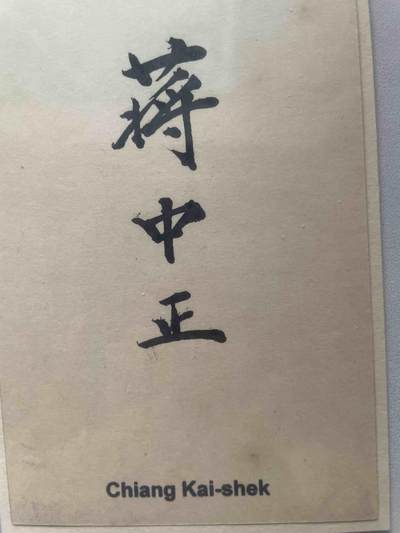 蔣中正
Chiang Kai-shek